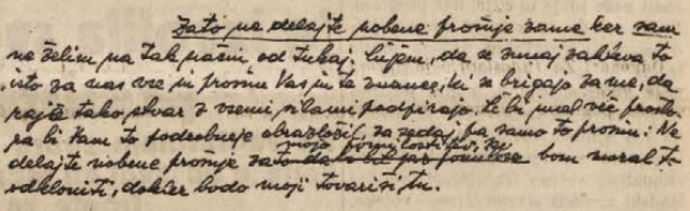 Zato ne delajte nobene prošnje zame ker sam
ne želim na tak način od tukaj. Cujem, da se zunaj zahteva to
isto za nas vse in prosim Vas in te znance, ki se brigajo za me, da
rajše tako stvar z vsemi silami podpirajo. Če bi imel več prostora
pa bi Vam to podrobneje obrazložil, za sedaj pa samo to prosim: Ne
delajte nobene prošnje za mojo pomilostitev, ker bom moral to
odkloniti, dokler bodo moji tovariši tu.